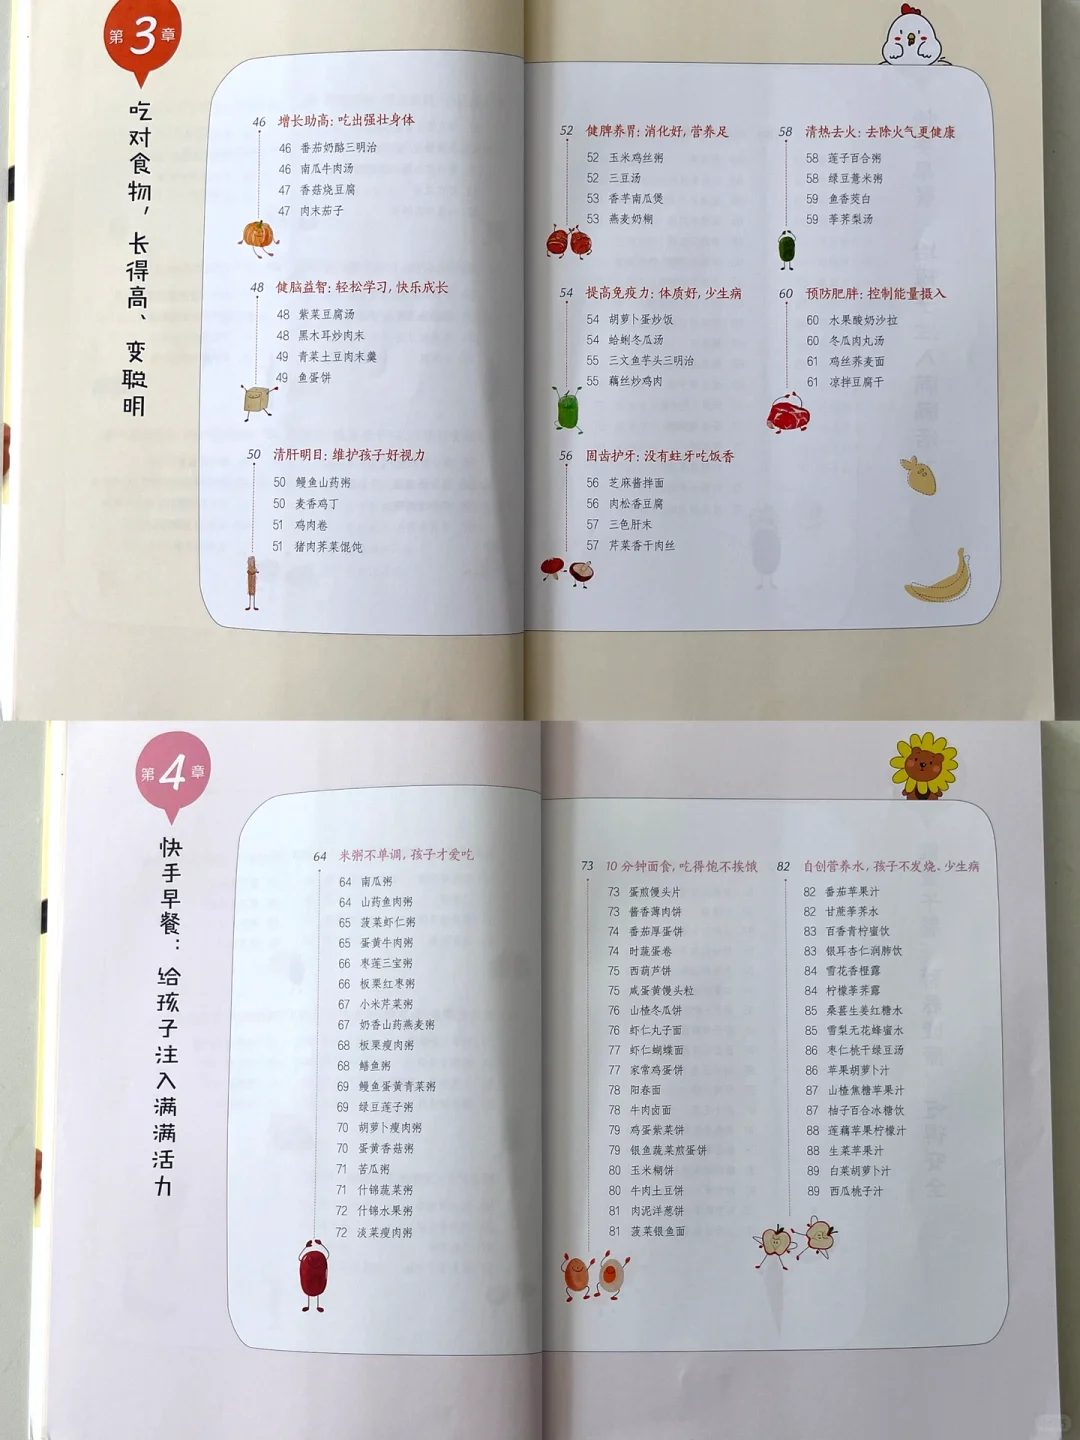 第3章
吃对食物，长得高、变聪明
46 增长助高：吃出强壮身体
46 番茄奶酪三明治
46 南瓜牛肉汤
47 香菇烧豆腐
47 肉末茄子
48 健脑益智：轻松学习，快乐成长
48 紫菜豆腐汤
48 黑木耳炒肉末
49 青菜土豆肉末羹
49 鱼蛋饼
50 清肝明目：维护孩子好视力
50 鳗鱼山药粥
50 麦香鸡丁
51 鸡肉卷
51 猪肉荠菜馄饨
52 健脾养胃：消化好，营养足
52 玉米鸡丝粥
52 三豆汤
53 香芋南瓜煲
53 燕麦奶糊
54 提高免疫力：体质好，少生病
54 胡萝卜蛋炒饭
54 蛤蜊冬瓜汤
55 三文鱼芋头三明治
55 藕丝炒鸡肉
56 固齿护牙：没有蛀牙吃饭香
56 芝麻酱拌面
56 肉松香豆腐
57 三色肝末
57 芹菜香干肉丝
58 清热去火：去除火气更健康
58 莲子百合粥
58 绿豆薏米粥
59 鱼香茭白
59 荸荠梨汤
60 预防肥胖：控制能量摄入
60 水果酸奶沙拉
60 冬瓜肉丸汤
61 鸡丝荞麦面
61 凉拌豆腐干
第4章
快手早餐：给孩子注入满满活力
64 米粥不单调，孩子才爱吃
64 南瓜粥
64 山药鱼肉粥
65 菠菜虾仁粥
65 蛋黄牛肉粥
66 枣莲三宝粥
66 板栗红枣粥
67 小米芹菜粥
67 奶香山药燕麦粥
68 板栗瘦肉粥
68 鳝鱼粥
69 鳗鱼蛋黄青菜粥
69 绿豆莲子粥
70 胡萝卜瘦肉粥
70 蛋黄香菇粥
71 苦瓜粥
71 什锦蔬菜粥
72 什锦水果粥
72 淡菜瘦肉粥
73 10分钟面食，吃得饱不挨饿
73 蛋煎馒头片
73 酱香薄肉饼
74 番茄厚蛋饼
74 时蔬蛋卷
75 西葫芦饼
75 咸蛋黄馒头粒
76 山楂冬瓜饼
76 虾仁丸子面
77 虾仁蝴蝶面
77 家常鸡蛋饼
78 阳春面
78 牛肉卤面
79 鸡蛋紫菜饼
79 银鱼蔬菜煎蛋饼
80 玉米糊饼
80 牛肉土豆饼
81 肉泥洋葱饼
81 菠菜银鱼面
82 自创营养水，孩子不发烧、少生病
82 番茄苹果汁
82 甘蔗荸荠水
83 百香青柠蜜饮
83 银耳杏仁润肺饮
84 雪花香橙露
84 柠檬荸荠露
85 桑葚生姜红糖水
85 雪梨无花蜂蜜水
86 枣仁桃干绿豆汤
86 苹果胡萝卜汁
87 山楂焦糖苹果汁
87 柚子百合冰糖饮
88 莲藕苹果柠檬汁
88 生菜苹果汁
89 白菜胡萝卜汁
89 西瓜桃子汁